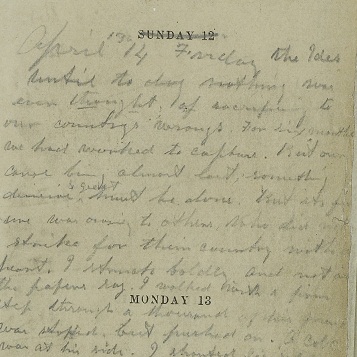 SUNDAY 12
April 14 Friday the Ides
Until to day nothing was
ever thought of sacrificing to
our country's wrongs. For six months
we had worked to capture. But our
cause being almost lost, something
decisive & great must be done. But its
was owing to others, who did not
strike for their country with a
heart. I struck boldly and not as
the papers say. I walked with a firm
step through a thousand of his
MONDAY 13
was stopped, but pushed on. A col
was at his side. I shouted